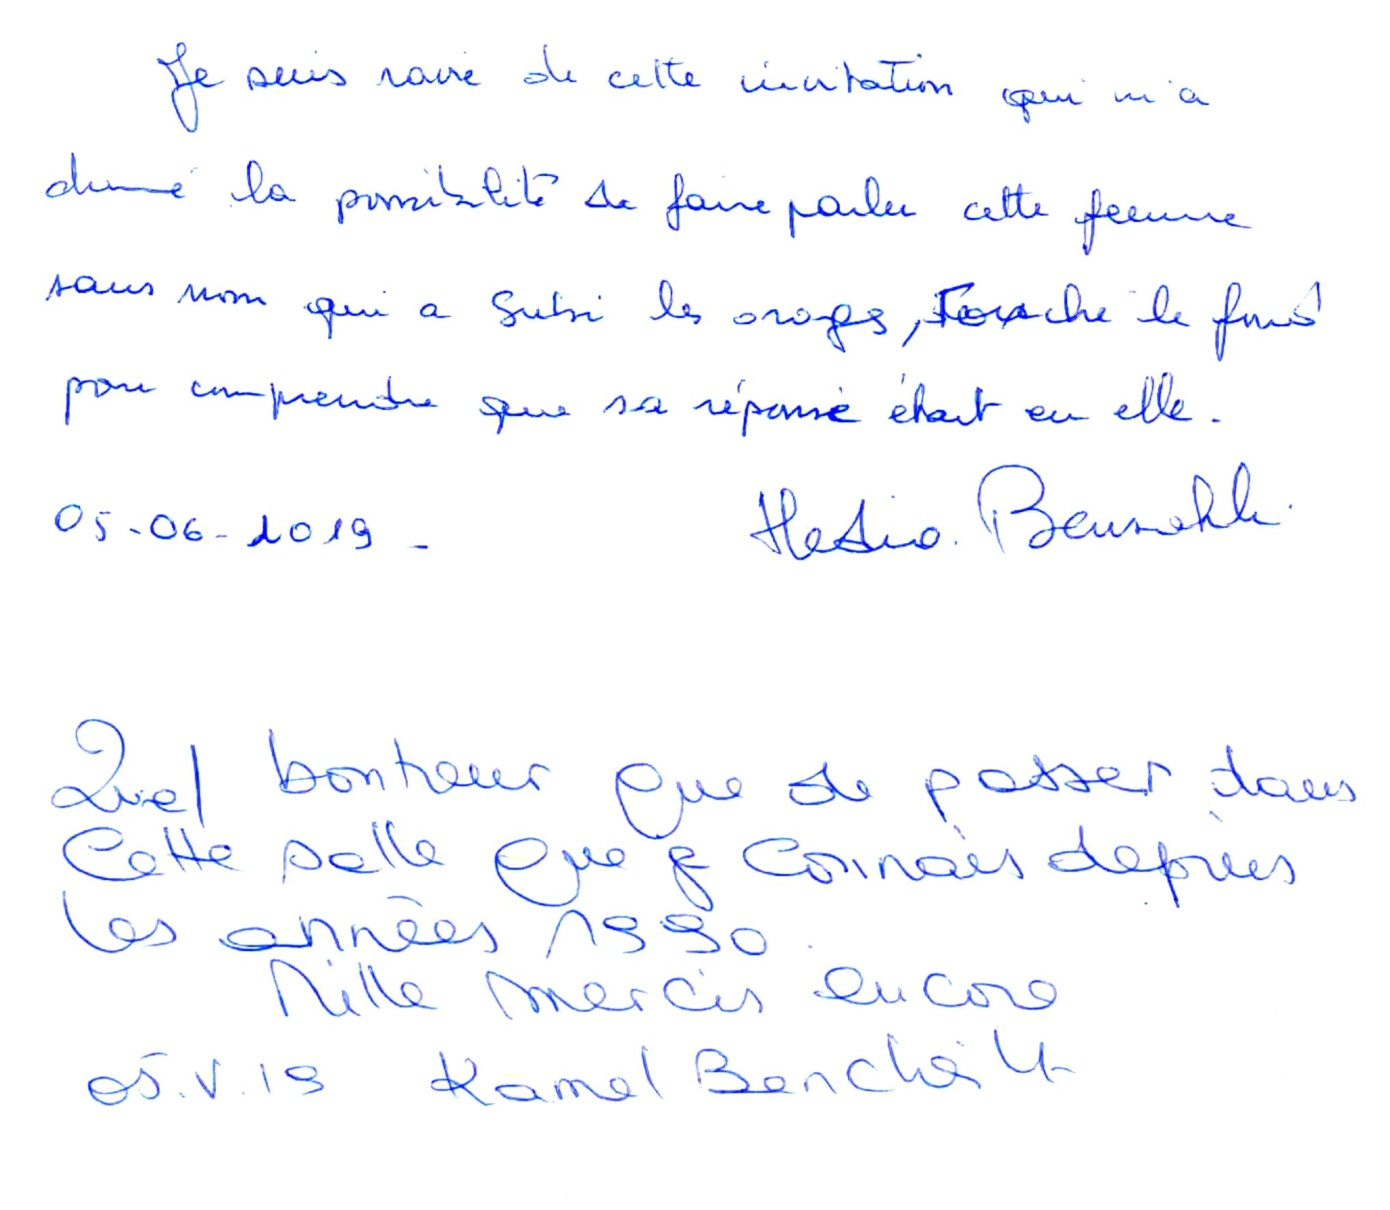 Je suis ravie de cette invitation qui m'a
donné la possibilité de faire parler cette femme
sans nom qui a subi les orages, touché le fond
pour comprendre que sa réponse était en elle.
05-06-2019-
Quel bonheur que de passer dans
Cette salle que je connais depuis
les années 1990.
Mille mercis encore
05.V.19 Kamel Bencheikh